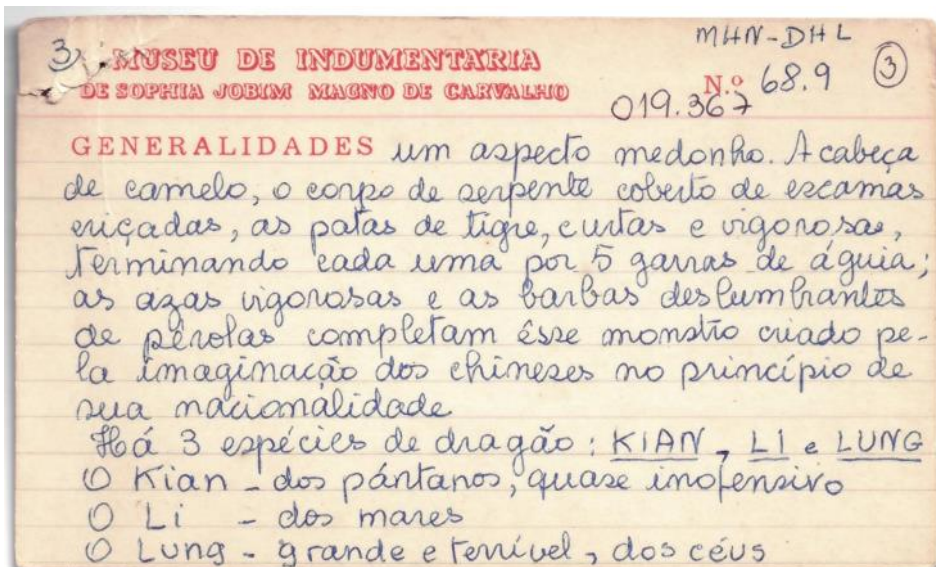 MHN-DHL
3) MUSEU DE INDUMENTARIA
DE SOPHIA JOBIM MAGNO DE CARVALHO
N.º 68.9 3
019.367
GENERALIDADES um aspecto medonho. A cabeça
de camelo, o corpo de serpente coberto de escamas
eriçadas, as patas de tigre, curtas e vigorosas,
terminando cada uma por 5 garras de águia;
as azas vigorosas e as barbas deslumbrantes
de pérolas completam êsse monstro criado pe-
la imaginação dos chineses no princípio de
sua nacionalidade
Há 3 espécies de dragão: KIAN, LI e LUNG
O Kian - dos pântanos, quase inofensivo
O Li - dos mares
O Lung - grande e terrível, dos céus